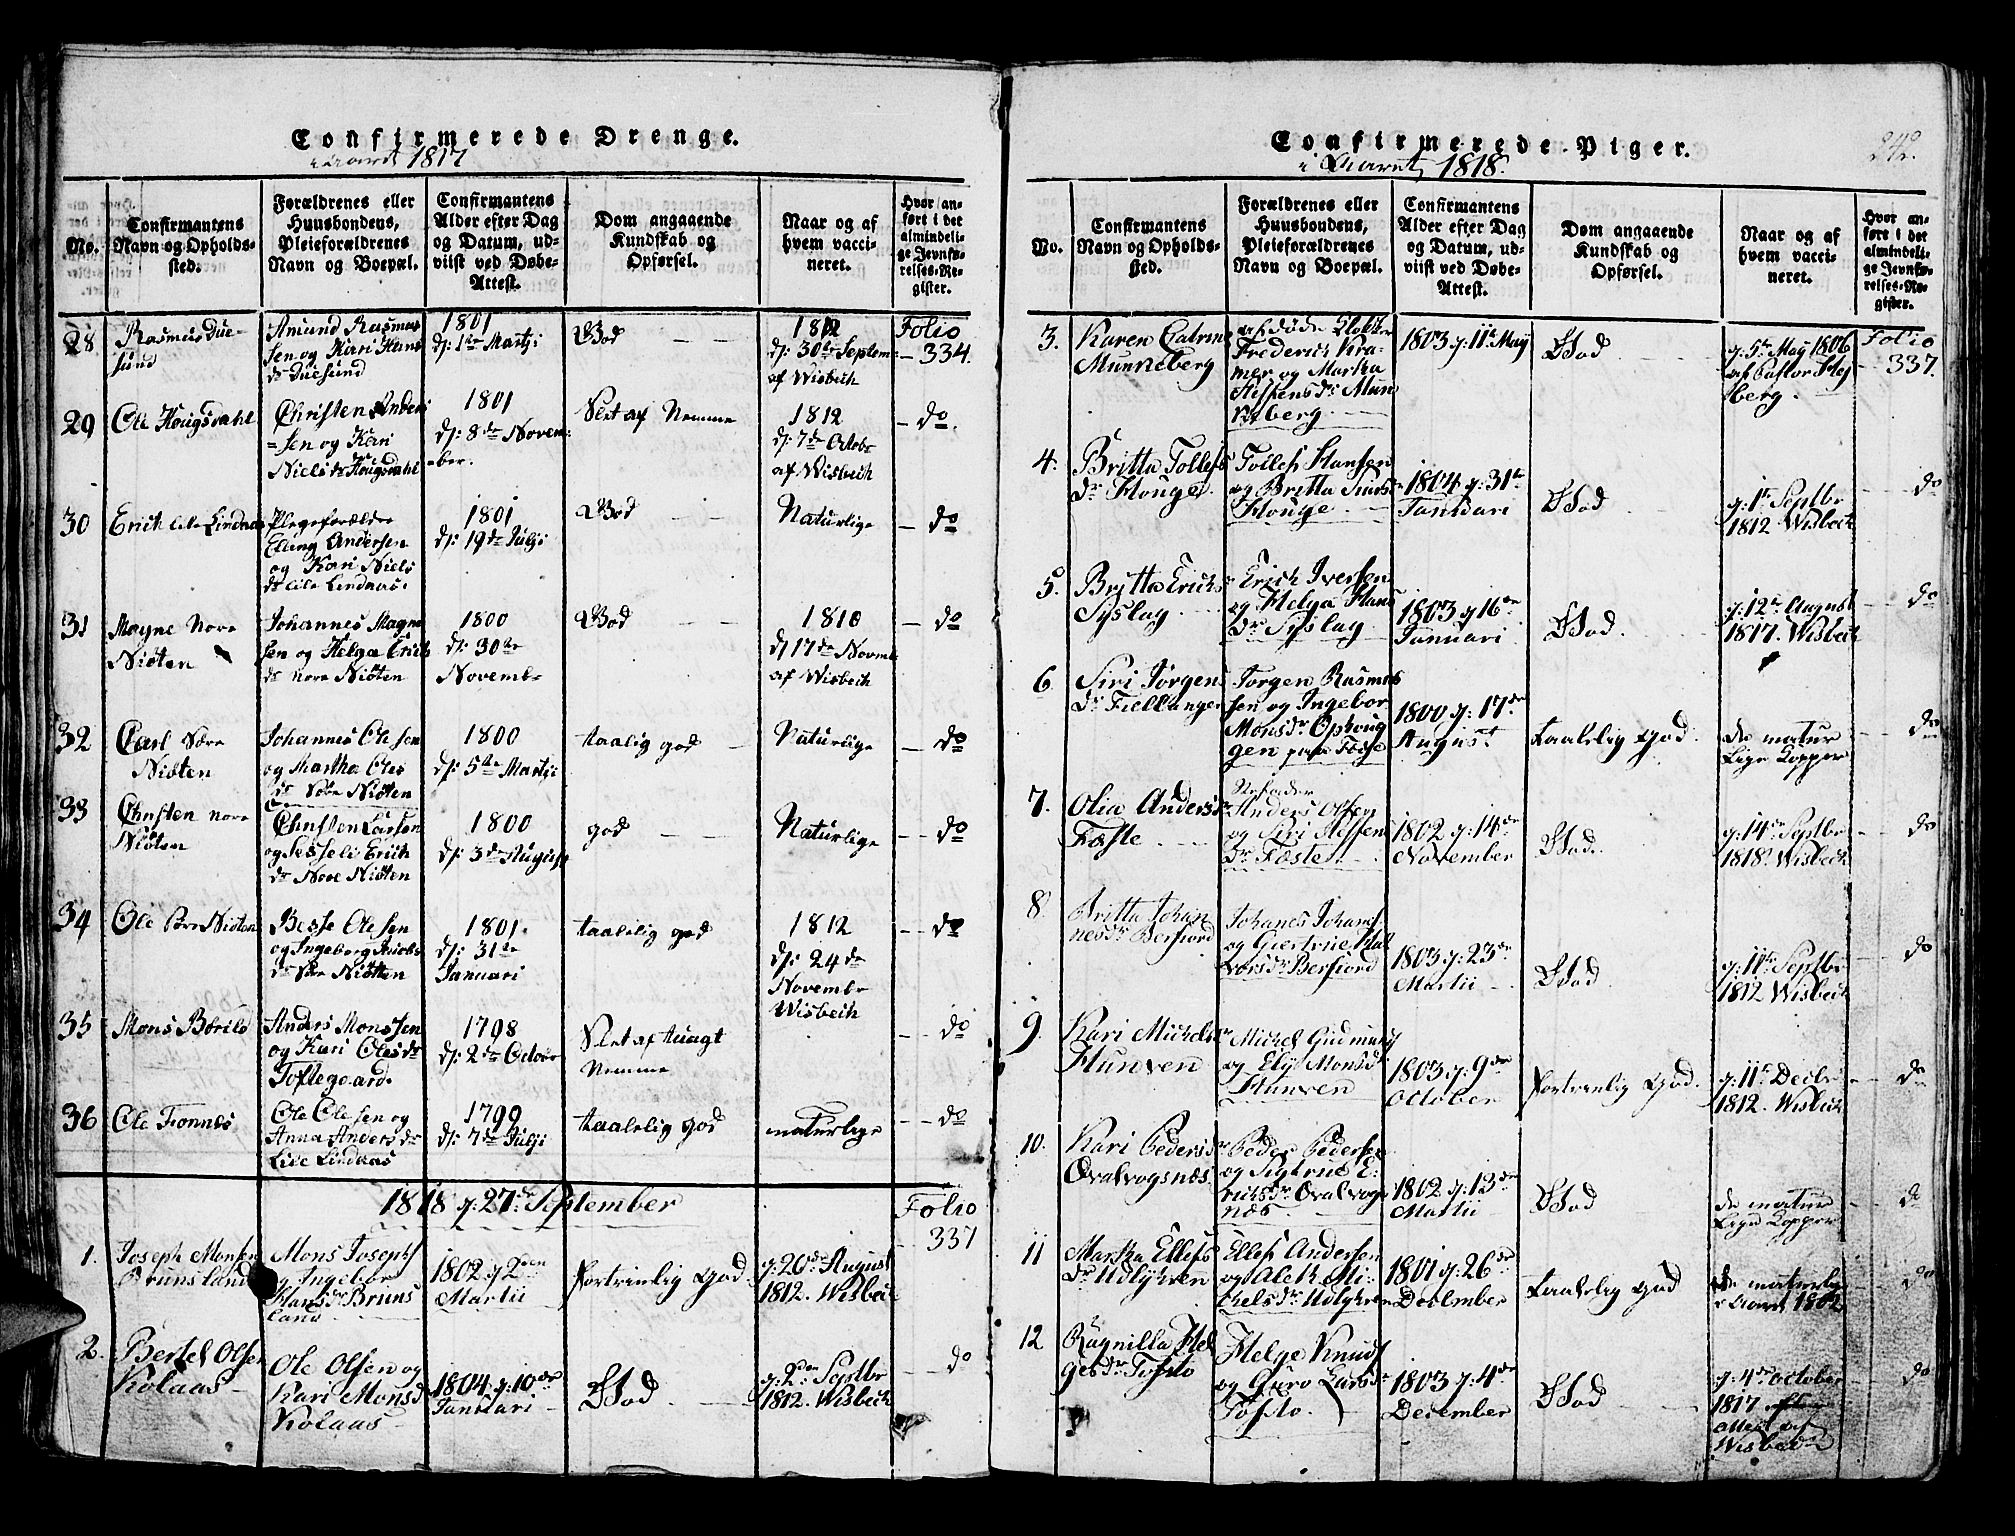 Confirmerede Drenge.
i Aaret 1817
No.
Confirmantens
Navn og Opholds-
sted.
Forældrenes eller
Huusbondens,
Pleieforældrenes
Navn og Boepæl.
Confirmantens
Alder efter Dag
og Datum, ud-
viist ved Døbe-
Attest.
Dom angaaende
Kundskab og
Opførsel.
Naar og af
hvem vacci-
neret.
Hvor an-
ført i det
almindeli-
ge Jevnfø-
relses-Re-
gister.
28
Rasmus Due-
sund
Amund Rasmus
sen og Kari Hans
dr Duesund
1801
d: 1te Martji
God
1812
d: 30te Septem
af Wisbech
Folio
334.
29
Ole Hougsdahl
Christen Anders
sen og Kari
Niels dr Hougsdahl
1801
d: 8de Novem
ber.
Slet af Nemme
1812
d: 7de Octobr
af Wisbech
do.
30
Erich lile Lindaas
Plegeforældre
Elling Andersen
og Kari Niels
dr lile Lindaas.
1801
d: 19de Julji
God
Naturlige
do
31
Magne Nore
Niöten
Johannes Magne
sen og Helga Erichs
dr nore Niöten
1800
d: 30te
Novemb
God
1810
d 17de Novmb
af Wisbech
do
32
Carl Søre
Niöten
Johannes Olesen
og Martha Oles
dr Søre Niöten
1800
d: 5te Martji
taalig god
Naturlige
do
33
Christen nore
Niöten
Christen Larsen
og Sesseli Erich
dr Nore Niöten
1800
d: 3de August
god
Naturlige
do
34
Ole Søre Niöten
Besse Olesen
og Ingeborg Jacobs
dr Søre Niötten
1801.
d: 31te
Januari
taalelig god
1812
d: 24de
Novembr
Wisbech
do
35
Mons Börilö
Anders Monssen
og Kari Olesdr
Toftegaard.
1798
d: 2de Octobr
Slet af tungt
Nemme
do
36
Ole Fonnes
Ole Olesen og
Anna Anders dr
Lile Lindaas
1799
d: 7de Julji
taalelig god
naturlige
do
1818 d: 27de September
Folio
337
1.
Joseph Monsen
Brunsland
Mons Josephs
og Ingebor
Hansdr Bruns
land
1802 d: 2den
Martii
fortrinlig God
d: 20de August
1812. Wisbech
2.
Bertel Olsen
Kolaas
Ole Olsen og
Kari Monsdr
Kolaas
1804 d: 10de
Januari
God
d: 2den Septbr
1812. Wisbech
do
Confirmerede Piger.
i Aaret 1818.
242.
No.
Confirmantens
Navn og Opholds-
sted.
Forældrenes eller
Huusbondens,
Pleieforældrenes
Navn og Boepæl.
Confirmantens
Alder efter Dag
og Datum, ud-
viist ved Døbe-
Attest.
Dom angaaende
Kundskab og
Opførsel.
Naar og af
hvem vacci-
neret.
Hvor an-
ført i det
almindeli-
ge Jevnfø-
relses-Re-
gister.
3.
Karen Catrine
Munneberg
afdöde Klokker
Frederich Kra-
mer og Martha
Steffensdr Mun
keberg.
1803 d: 11te May
God
d: 5te May 1806
af Pastor Hej
berg.
Folio
337.
4.
Britta Tollefs
dr Houge.
Tollef Hansen
og Britta Siurs
Houge
1804 d: 31te
Januari
God
d: 1te Septbr
1812 Wisbech
do
5.
Britta Erichs
Syslag
Erich Iversen
og Helga Hans
dr Syslag
1803 d: 16de
Januari
God
d: 12te August
1817. Wisbech
do
6.
Siri Jörgens
dr Fiellanger
Jorgen Rasmus
sen og Ingebor
Monsdr Ophoug
gen paa Fosse
1800 d: 17de
August
taalelig God.
de natur
lige Kopper
do
7.
Olia Andersdr
Fæste
Anders Olsen
og Siri Steffens
dr Fæste
1802 d: 14de
November
God.
d: 14de Septbr
1818. Wisbech
do
8
Britta Johan
nesdr Berfiord
Johanes Johanes
og Giertrue Hal
vorsdr Berfiord
1803 d: 23de
Martii
God
d: 11te Septbr
1812 Wisbech
do
9
Kari Michelsdr
Hunven
Michel Gudmund
og Ely Monsdr
Hunven
1803 d: 9de
October
fortrinlig God.
d: 11te Decbr
1812. Wisbech
do
10.
Kari Pedersdr
Qvalvogsnæs
Peder Pedersen
og Sigtrue E-
richsdr Qvalvog
næs
1802 d: 13de
Martii
God
de natur
lige Kopper
do
11
Martha Ellefs
dr Udlykken
Ellef Andersen
og Aleth Mi-
chelsdr Udlykken
1801 d: 26de
December
taalelig god
de naturlig
i Aaret 1802
do
12
Ragnilla Hel
gesdr Tofsto
Helge Knuds
og Guro Larsdr
Tofsto.
1803 d: 4de
December
God
d: 4de October
1817 efter
attest af
Wisbech
do